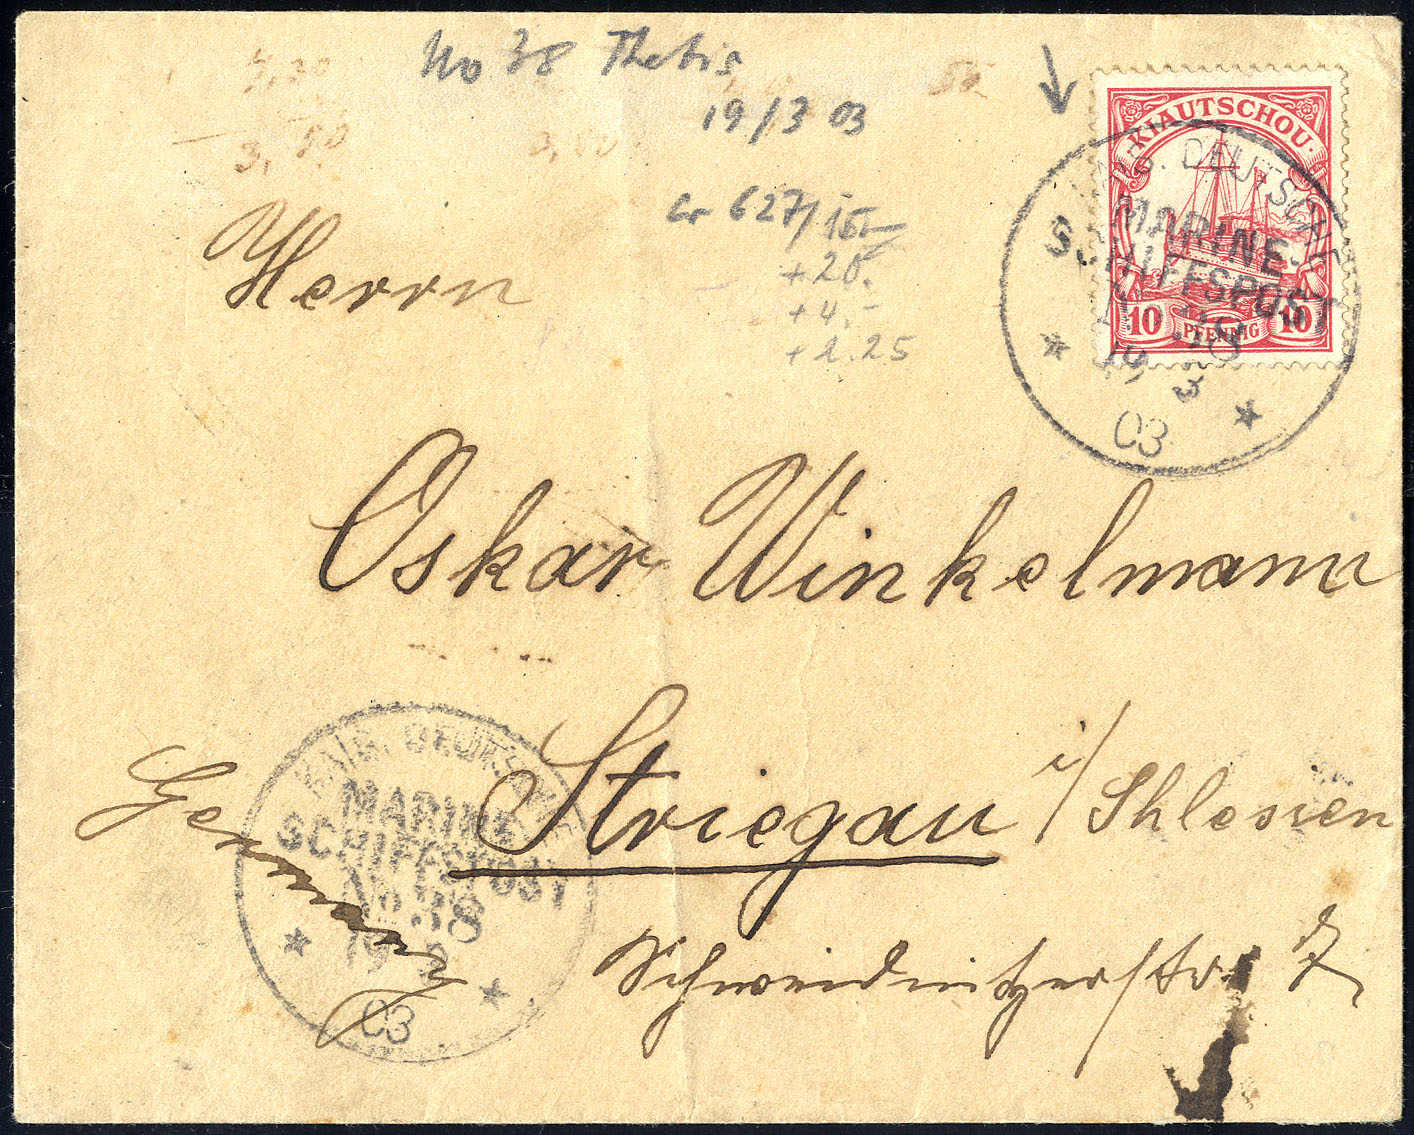 No 38 Thetis
19/3 03
627/
+20.
+4,-
+1.25
7,50
3,50
3,00
50
KIAUTSCHOU
10 PFENNIG 10
KAIS. DEUTSCHE
MARINE-
SCHIFFSPOST
No 38
19 3
03
Herrn
Oskar Winkelmann
Striegau i/Shlesien
Schweidnitzerstr. 7
Germany
KAIS. DEUTSCHE
MARINE-
SCHIFFSPOST
No 38
19 3
03